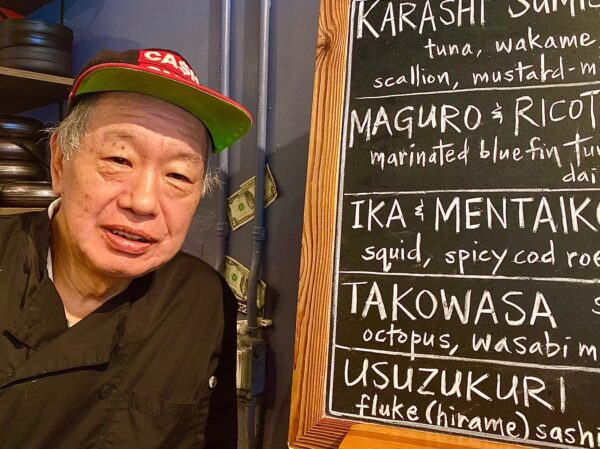 CASH
KARASHI
tuna, wakame,
scallion, mustard-m
MAGURO & RICOT
marinated bluefin tun
dai
IKA & MENTAIKO
squid, spicy cod roe
TAKOWASA S
octopus, wasabi m
USUZUKURI
fluke (hirame) sashi